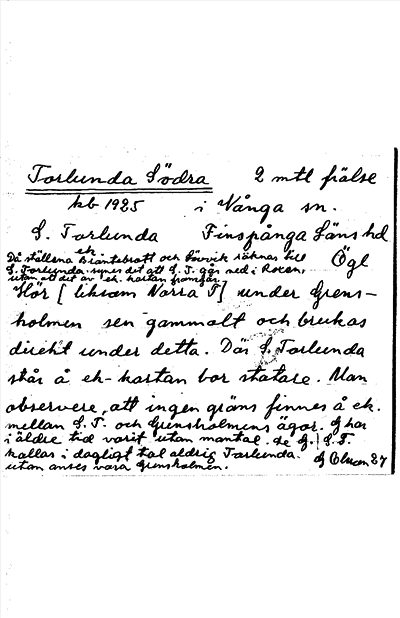 Torlunda Södra 2 mtl frälse
kb 1925 i Vånga sn.
S. Torlunda Finspånga Läns hd
Ögl
Då ställena Bräntabrott och Sörvik räknas till ek.
S. Torlunda synes det att S. T. går ned i Roxen,
utan att det av ek. kartan framgår.
Hör [liksom Norra T] under Grens-
holmen sen gammalt och brukas
direkt under detta. Där S. Torlunda
står å ek-kartan bor statare. Man
observere, att ingen gräns finnes å ek.
mellan S. T. och Grensholmens ägor. G har
i äldre tid varit utan mantal. se G.! S. T.
kallas i dagligt tal aldrig Torlunda.
utan anses vara Grensholmen.
27